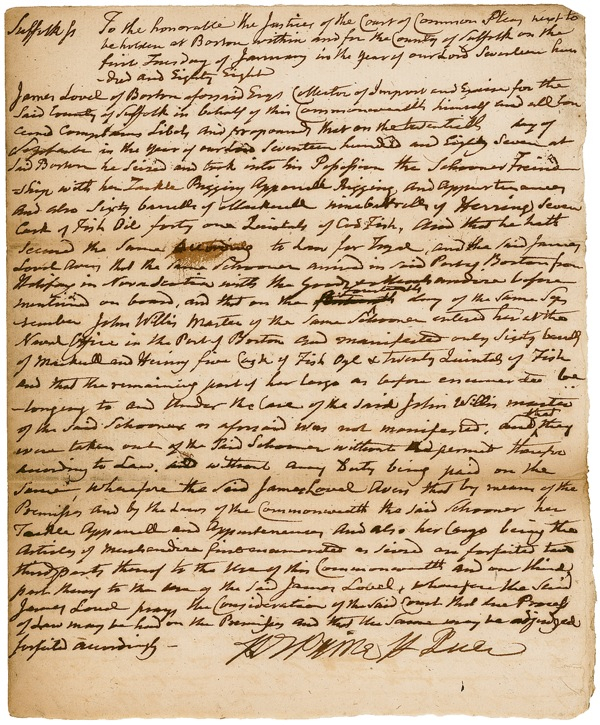 Suffolk ss To the honorable the Justices of the Court of Common Pleas next to
be holden at Boston within and for the County of Suffolk on the
first Tuesday of January in the year of our Lord Seventeen hun
-dred and Eighty Eight
James Lovel of Boston aforesaid Esqr Collector of Impost and Excise for the
Said County of Suffolk in behalf of this Commonwealth himself and all Con
cernd Complains Libels and propounds that on the day of
in the year of our Lord Seventeen hundred and Eighty Seven at
Said Boston he Seized and took into his Possession the Schooner Freind
-ship with her Tackle Apparell Rigging and Appurtenances
and also Sixty barrells of Mackerell nine barrells of Herring Seven
Cask of Fish Oil forty one Quintals of Cod Fish, And that he hath
secured the Same to how for Tryal, and the Said James
Lovel Avers that the Same Schooner arrived in said Port of Boston from
Halifax in Nova Scotia with the Goods before
mentioned on board, and that on the day of the Same Sep
tember John Willis Master of the Same Schooner entered her at the
Naval Office in the Port of Boston and manifested only Sixty barrells
of Mackrell and Herring five Cask of Fish Oyl & twenty Quintals of Fish
and that the remaining part of her Cargo as before enumerated be
-longing to and Under the Care of the Said John Willis master
of the Said Schooner as aforsaid was not manifested, and that they
were taken out of the Said Schooner without permit therefor
according to Law, and without any Duty being paid on the
Same, wherefore the Said James Lovel Avers that by means of the
Premisses and by the Laws of the Commonwealth the Said Schooner her
Tackle Apparell and Appurtenances And also her Cargo being the
Articles of Merchandize first enumerated as Seized are forfeited two
third parts thereof to the Use of this Commonwealth and one third
part thereof to the Use of the Said James Lovel, wherefore the Said
James Lovel prays the Consideration of the Said Court that due Process
of Law may be had on the Premisses and that the Same may be adjudged
forfeit accordingly —